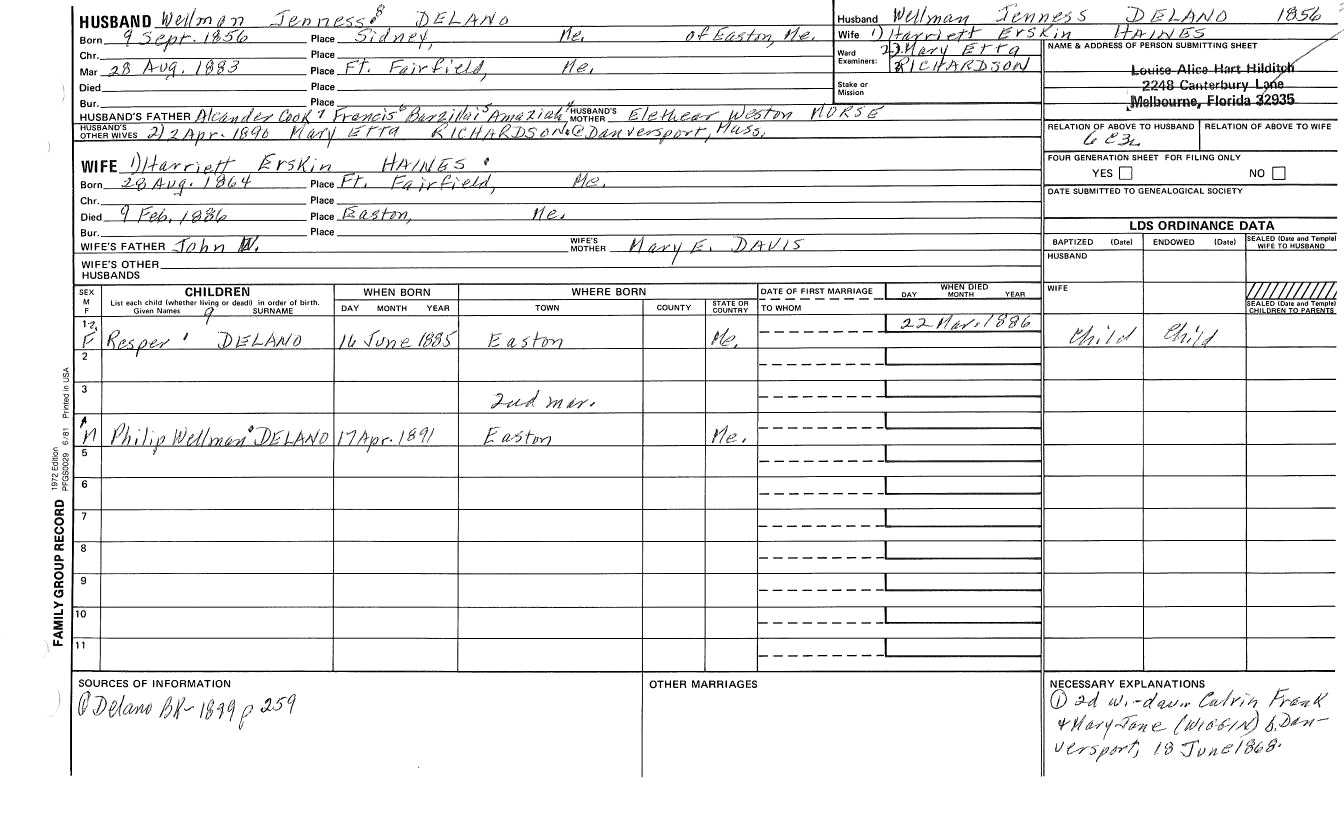 HUSBAND Wellman Jenness 8 DELANO
Born 9 Sept. 1856 Place Sidney, Me. of Easton, Me.
Chr. Place
Mar 28 Aug. 1883 Place Ft. Fairfield, Me.
Died Place
Bur. Place
HUSBAND'S FATHER Alcander Cook 7 Francis 6 Barzillai 5 Amaziah 4 HUSBAND'S MOTHER Elethear Weston MORSE
HUSBAND'S OTHER WIVES 2) 2 Apr. 1890 Mary Etta RICHARDSON @ Danversport, Mass.
WIFE 1) Harriett Erskin HAINES
Born 28 Aug. 1864 Place Ft. Fairfield, Me.
Chr. Place
Died 9 Feb. 1886 Place Easton, Me.
Bur. Place
WIFE'S FATHER John W. WIFE'S MOTHER Mary E. DAVIS
WIFE'S OTHER HUSBANDS
Husband Wellman Jenness DELANO 1856
Wife 1) Harriett Erskin HAINES
2) Mary Etta RICHARDSON
Ward
Examiners:
Stake or
Mission
NAME & ADDRESS OF PERSON SUBMITTING SHEET
Louise Alice Hart Hilditch
2248 Canterbury Lane
Melbourne, Florida 32935
RELATION OF ABOVE TO HUSBAND RELATION OF ABOVE TO WIFE
FOUR GENERATION SHEET FOR FILING ONLY
YES NO
DATE SUBMITTED TO GENEALOGICAL SOCIETY
LDS ORDINANCE DATA
BAPTIZED (Date) ENDOWED (Date) SEALED (Date and Temple) WIFE TO HUSBAND
HUSBAND
WIFE
SEALED (Date and Temple) CHILDREN TO PARENTS
SEX M F CHILDREN WHEN BORN WHERE BORN DATE OF FIRST MARRIAGE WHEN DIED
List each child (whether living or dead) in order of birth.
Given Names 9 SURNAME DAY MONTH YEAR TOWN COUNTY STATE OR COUNTRY TO WHOM DAY MONTH YEAR
1 F Resper DELANO 14 June 1885 Easton Me. 22 Mar. 1886 Child Child
2
3 2nd mar.
4 M Philip Wellman DELANO 17 Apr. 1891 Easton Me.
5
6
7
8
9
10
11
FAMILY GROUP RECORD 1972 Edition PFGS0029 6/81 Printed in USA
SOURCES OF INFORMATION
Delano BK-1899 p 259
OTHER MARRIAGES
NECESSARY EXPLANATIONS
① 2d w.-dau. Calvin Frank
& Mary Jane (WIGGIN) b. Dan-
versport, 18 June 1868.